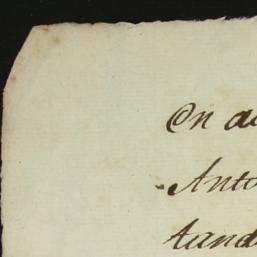 On a
Anto
tand